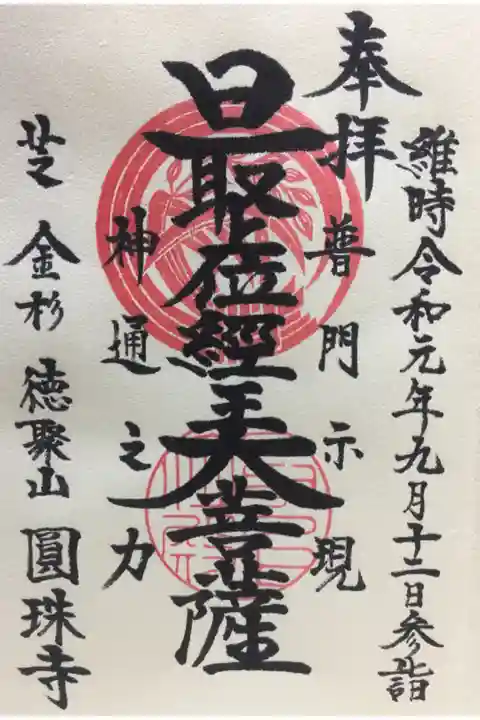 維時令和元年九月十二日参詣
奉拝
普門示現
最上位經王大菩薩
神通之力
芝 金杉 徳聚山 圓珠寺